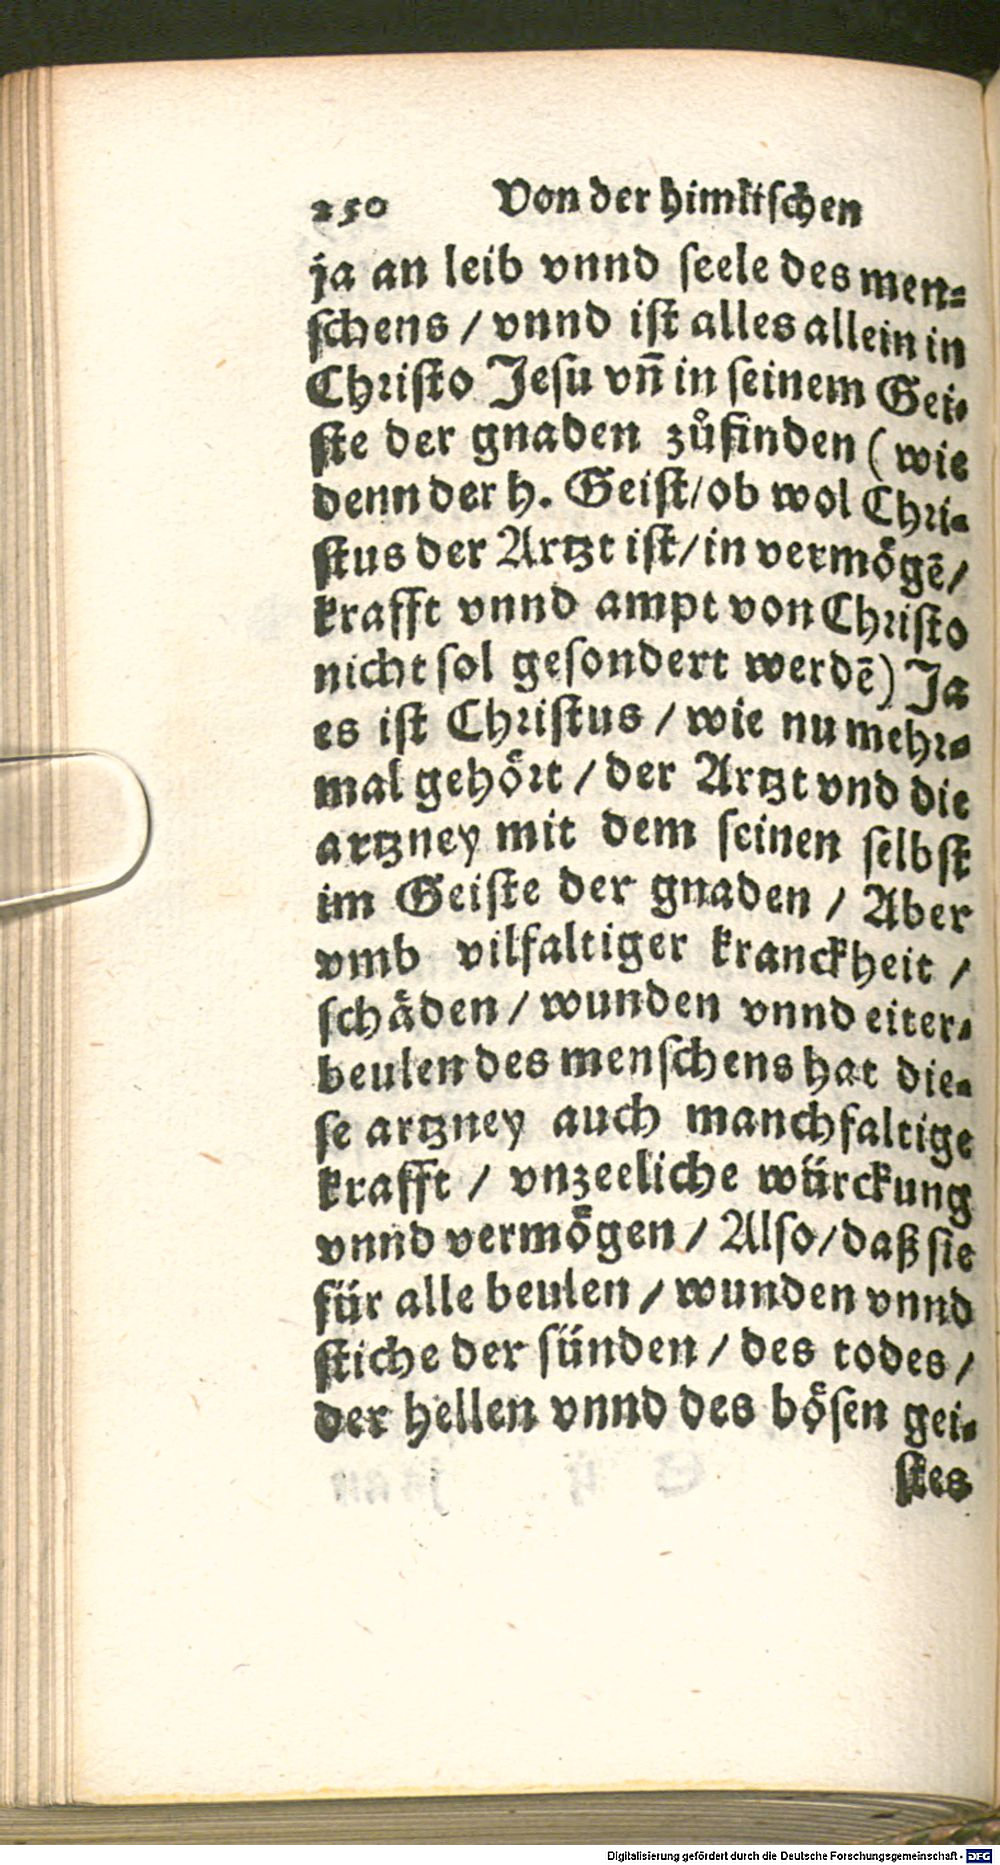 250 Von der himlischen
ja an leib vnnd seele des men⸗
schens / vnnd ist alles allein in
Christo Jesu vn̄ in seinem Gei⸗
ste der gnaden zůfinden (wie
denn der h. Geist / ob wol Chri⸗
stus der Artzt ist / in vermoͤgē /
krafft vnnd ampt von Christo
nicht sol gesondert werdē) Ja
es ist Christus / wie nu mehr⸗
mal gehoͤrt / der Artzt vnd die
artzney mit dem seinen selbst
im Geiste der gnaden / Aber
vmb vilfaltiger kranckheit /
schaͤden / wunden vnnd eiter⸗
beulen des menschens hat die⸗
se artzney auch manchfaltige
krafft / vnzeeliche würckung
vnnd vermoͤgen / Also / daß sie
für alle beulen / wunden vnnd
stiche der sünden / des todes /
der hellen vnnd des boͤsen gei⸗
stes
Digitalisierung gefördert durch die Deutsche Forschungsgemeinschaft - DFG